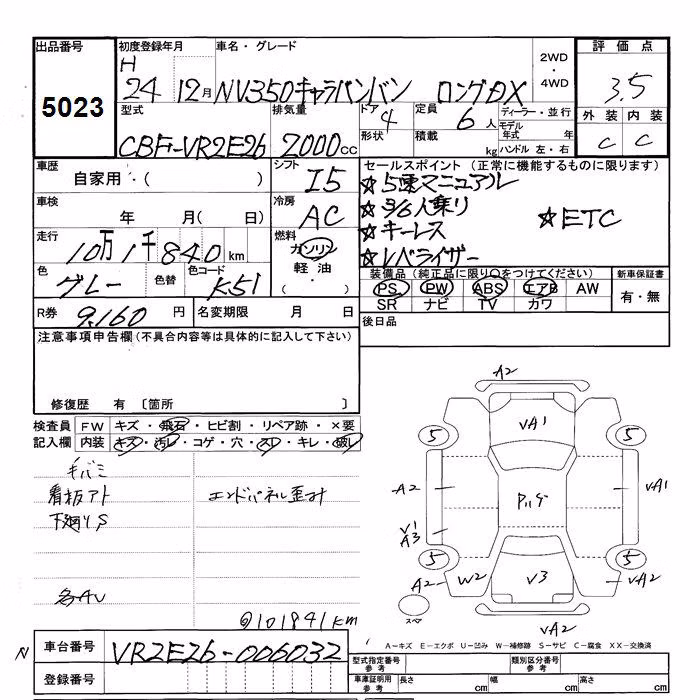 出品番号 初度登録年月 車名・グレード 2WD・4WD 評価点
5023 H 24 12月 NV350キャラバンバン ロングDX 3.5
型式 排気量 ドア 4 定員 6人 ディーラー・並行 外装 内装
CBF-VR2E26 2000cc 形状 積載 kg モデル年式 年 ハンドル 左・右 C C
車歴 自家用・( ) シフト I5 セールスポイント(正常に機能するものに限ります)
☆5速マニュアル
車検 年 月( 日) 冷房 AC ☆3/6人乗り ☆ETC
☆キーレス
走行 10万1千840km 燃料 ガソリン 軽油・( ・ ) ☆レベライザー
色 グレー 色替 色コード K51 装備品(純正品に限り○をつけてください) 新車保証書
PS PW ABS エアB AW 有・無
SR ナビ TV カワ
R券 9,160円 名変期限 月 日 後日品
注意事項申告欄(不具合内容等は具体的に記入して下さい)
修復歴 有 〔箇所 〕
検査員記入欄 FW キズ・飛石・ヒビ割・リペア跡・×要
内装 キズ・汚レ・コゲ・穴・スレ・キレ・破レ
毛バミ
看板アト エンドパネル歪ミ
下廻りS
各AU
@101841km
A2
VA1
5 5
A2 VA1
V1
A3
5 5
A2 W2 V3 A2
スペ VA2
A-キズ E-エクボ U-凹み W-補修跡 S-サビ C-腐食 XX-交換済
N 車台番号 VR2E26-006032
登録番号
型式指定番号 参考 類別区分番号 参考
車庫証明用 参考 長さ cm 幅 cm 高さ cm